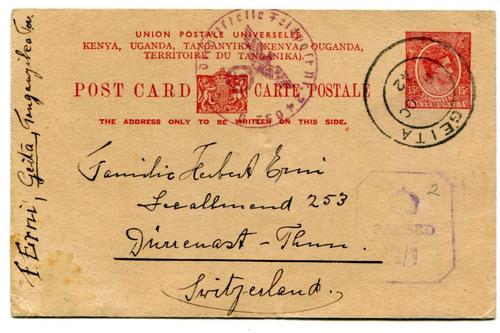 UNION POSTALE UNIVERSELLE.
KENYA, UGANDA, TANGANYIKA (KENYA, OUGANDA,
TERRITOIRE DU TANGANIKA).
POST CARD CARTE POSTALE
THE ADDRESS ONLY TO BE WRITTEN ON THIS SIDE.
15c 15c
KENYA UGANDA
GEITA
Familie Herbert Erni
Seeallmend 253
Dürrenast - Thun.
Switzerland.
2
PASSED
Geita, Tanganyika